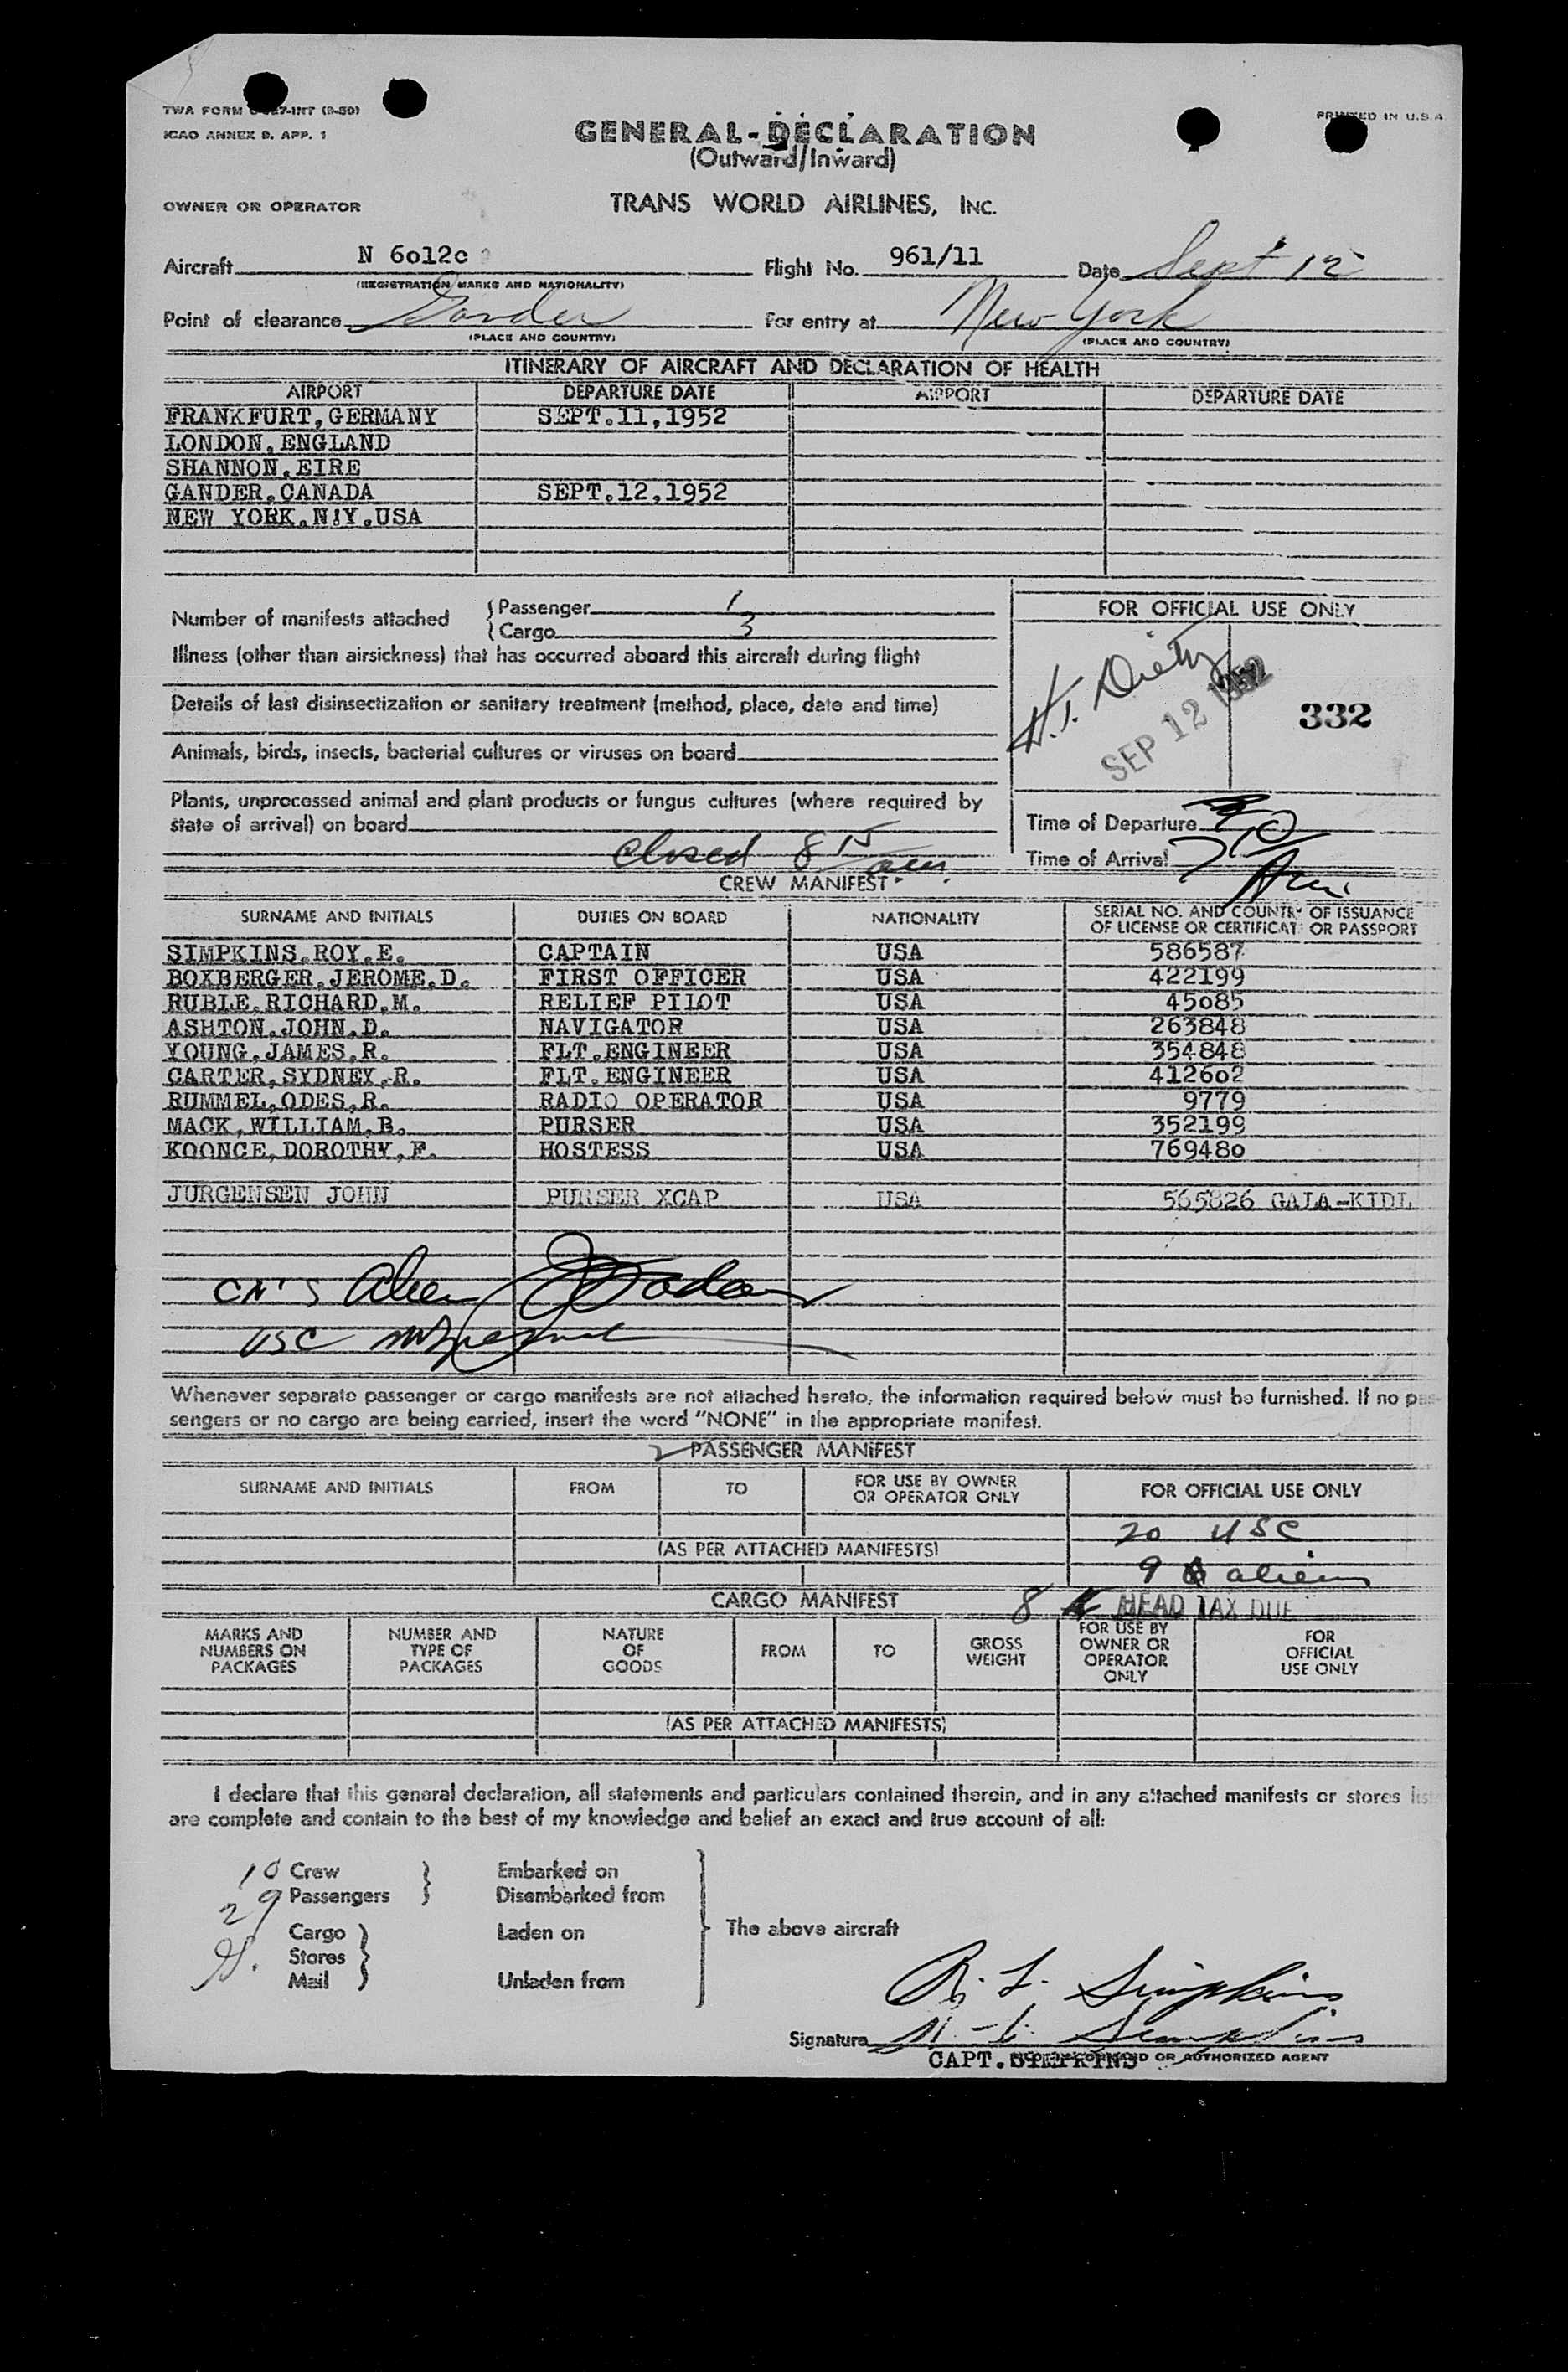 TWA FORM
ICAO ANNEX 9, APP. 1
PRINTED IN U.S.A
GENERAL-DECLARATION
(Outward/Inward)
OWNER OR OPERATOR TRANS WORLD AIRLINES, INC.
Aircraft N 6o12c Flight No. 961/11 Date Sept 12
(REGISTRATION MARKS AND NATIONALITY)
Point of clearance Gander For entry at New York
(PLACE AND COUNTRY) (PLACE AND COUNTRY)
ITINERARY OF AIRCRAFT AND DECLARATION OF HEALTH
AIRPORT DEPARTURE DATE AIRPORT DEPARTURE DATE
FRANKFURT,GERMANY SEPT.11,1952
LONDON,ENGLAND
SHANNON,EIRE
GANDER,CANADA SEPT.12,1952
NEW YORK.N!Y.USA
Number of manifests attached
Passenger 1
Cargo 3
FOR OFFICIAL USE ONLY
SEP 12 1952
332
Illness (other than airsickness) that has occurred aboard this aircraft during flight
Details of last disinsectization or sanitary treatment (method, place, date and time)
Animals, birds, insects, bacterial cultures or viruses on board
Plants, unprocessed animal and plant products or fungus cultures (where required by
state of arrival) on board
Time of Departure
Time of Arrival
Closed 8 15 am.
CREW MANIFEST
SURNAME AND INITIALS DUTIES ON BOARD NATIONALITY SERIAL NO. AND COUNTRY OF ISSUANCE
OF LICENSE OR CERTIFICATE OR PASSPORT
SIMPKINS.ROY.E. CAPTAIN USA 586587
BOXBERGER.JEROME.D. FIRST OFFICER USA 422199
RUBLE.RICHARD.M. RELIEF PILOT USA 45o85
ASHTON.JOHN.D. NAVIGATOR USA 263848
YOUNG.JAMES.R. FLT.ENGINEER USA 354848
CARTER.SYDNEY.R. FLT.ENGINEER USA 4126o2
RUMMEL,ODES,R. RADIO OPERATOR USA 9779
MACK,WILLIAM,B. PURSER USA 352199
KOONCE,DOROTHY,F. HOSTESS USA 76948o
JURGENSEN JOHN PURSER XCAP USA 565826 GALA-KIDL
USC
Whenever separate passenger or cargo manifests are not attached hereto, the information required below must be furnished. If no pas-
sengers or no cargo are being carried, insert the word "NONE" in the appropriate manifest.
PASSENGER MANIFEST
SURNAME AND INITIALS FROM TO FOR USE BY OWNER
OR OPERATOR ONLY FOR OFFICIAL USE ONLY
20 USC
(AS PER ATTACHED MANIFESTS)
9 aliens
CARGO MANIFEST
8 HEAD TAX DUE
MARKS AND
NUMBERS ON
PACKAGES
NUMBER AND
TYPE OF
PACKAGES
NATURE
OF
GOODS
FROM TO
GROSS
WEIGHT
FOR USE BY
OWNER OR
OPERATOR
ONLY
FOR
OFFICIAL
USE ONLY
(AS PER ATTACHED MANIFESTS)
I declare that this general declaration, all statements and particulars contained therein, and in any attached manifests or stores list
are complete and contain to the best of my knowledge and belief an exact and true account of all:
10 Crew Embarked on
29 Passengers Disembarked from
Cargo Laden on The above aircraft
Stores
Mail Unladen from
Simpkins
Signature
CAPT.SIMPKINS
COMMAND OR AUTHORIZED AGENT